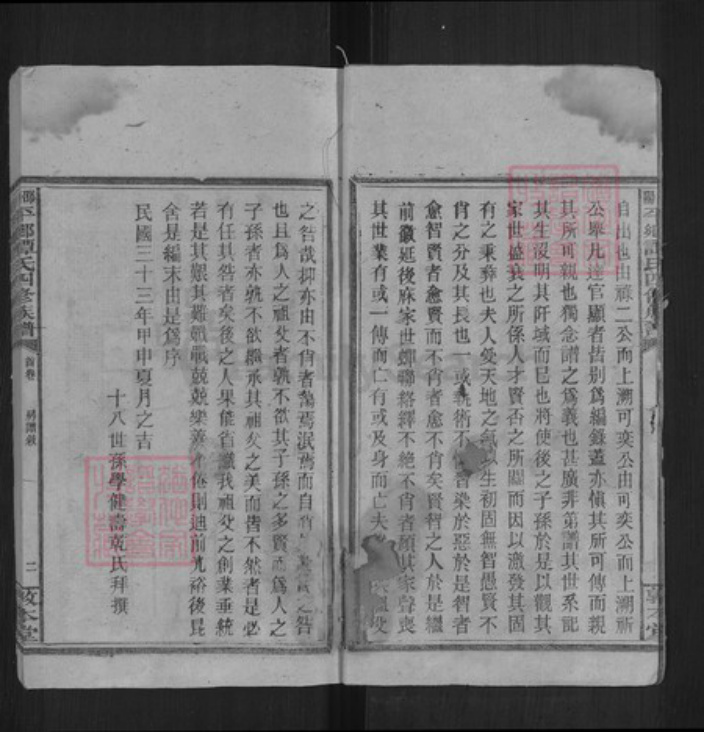 自出也由祿二公而上溯可奕公由可奕公而上溯所
公舉凡達官顯者皆別爲編錄蓋亦愼其所可傳而親
其所可親也獨念譜之爲義也甚廣非第譜其世系記
其生沒明其阡域而已也將使後之子孫於是以觀其
家世盛衰之所係人才賢否之所關而因以激發其固
有之秉彝也夫人受天地之氣以生初固無智愚賢不
肖之分及其長也一或執術不 習染於惡於是智者
愈智賢者愈賢而不肖者愈不肖矣賢智之人於是繼
前徽延後庥家世蟬聯絡繹不絕不肖者頹其家聲喪
其世業有或一傳而亡有或及身而亡夫 祖父
之咎哉抑亦由不肖者蕩焉泯焉而自 之咎
也且爲人之祖父者孰不欲其子孫之多賢而爲人之
子孫者亦孰不欲繼承其祖父之美而皆不然者是必
有任其咎者矣後之人果能省識我祖父之創業垂統
若是其艱其難戰戰兢兢樂善不倦則迪前光裕後昆
舍是編末由是爲序
民國三十三年甲申夏月之吉
十八世孫學健壽 氏拜撰
平鄉譚氏四修族譜
首卷
譚敘
二
敦本堂